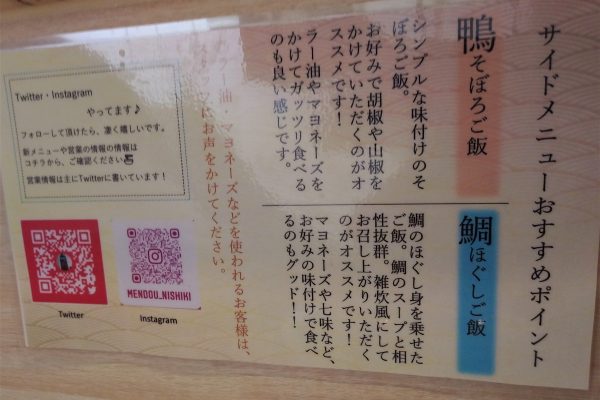 サイドメニューおすすめポイント
鴨そぼろご飯
シンプルな味付けのそ
ぼろご飯。
お好みで胡椒や山椒を
かけていただくのがオ
ススメです！
ラー油やマヨネーズを
かけてガッツリ食べる
のも良い感じです。
鯛ほぐしご飯
鯛のほぐし身を乗せた
ご飯。鯛のスープと相
性抜群。雑炊風にして
お召し上がりいただく
のがオススメです！
マヨネーズや七味など、
お好みの味付けで食べ
るのもグッド！！
ラー油・マヨネーズなどを使われるお客様は、
スタッフにお声をかけてください。
Twitter・Instagram
やってます♪
フォローして頂けたら、凄く嬉しいです。
新メニューや営業の情報の情報は
コチラから、ご確認ください
営業情報は主にTwitterに書いています！
MENDOU_NISHIKI
Twitter
Instagram